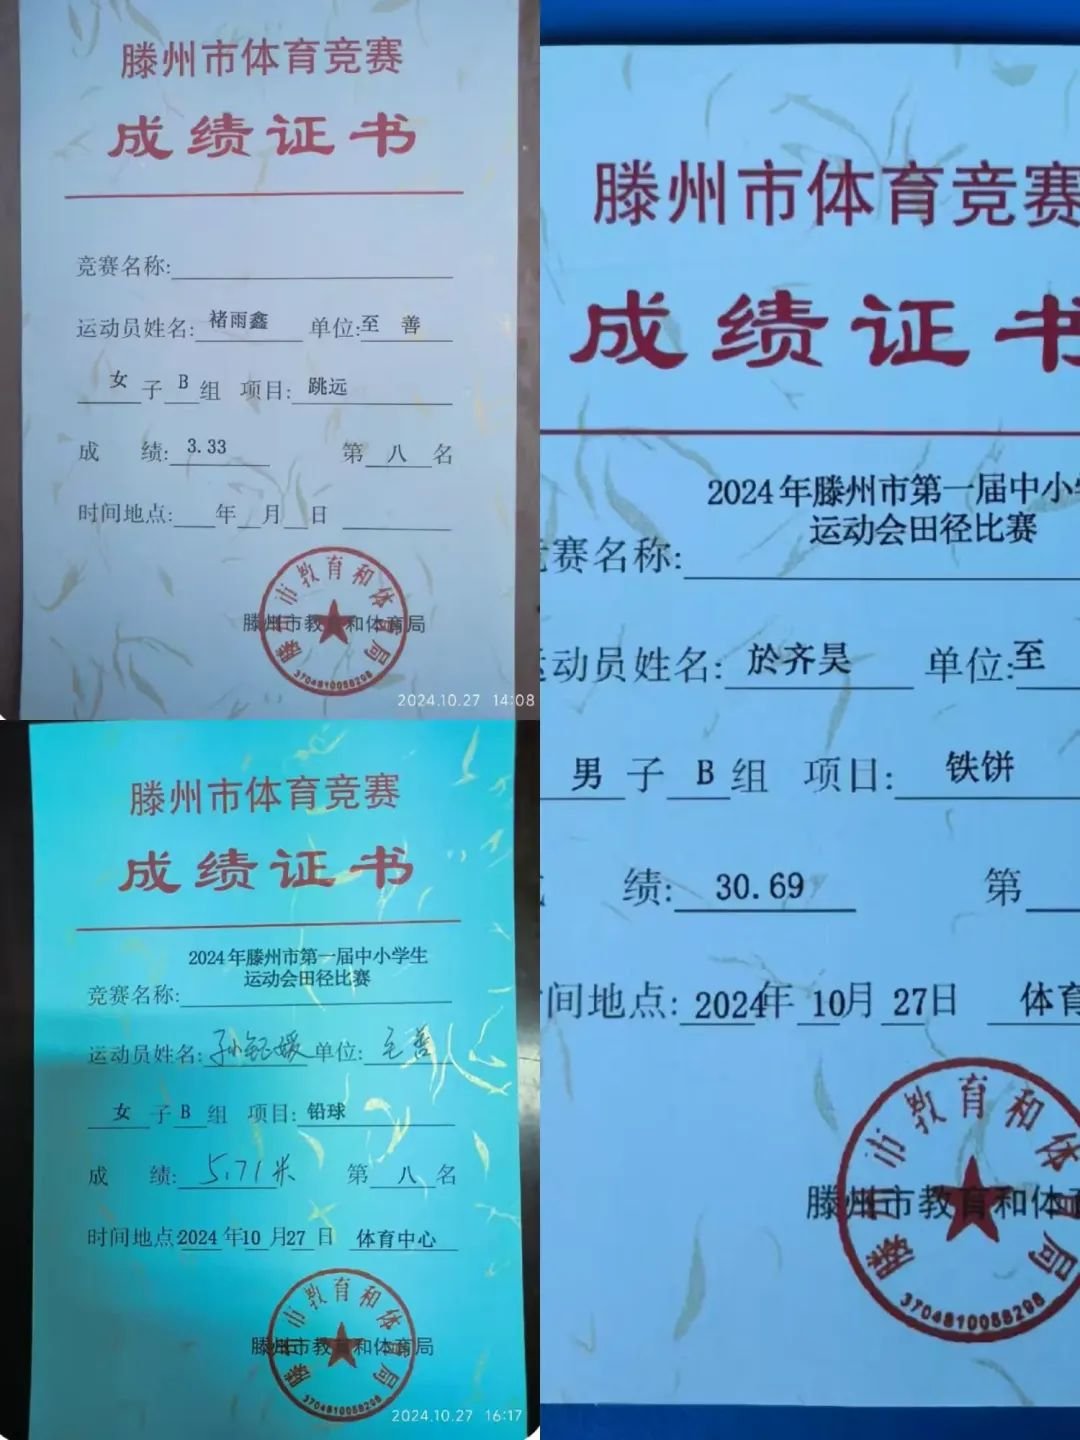 滕州市体育竞赛
成绩证书
竞赛名称:
运动员姓名: 褚雨鑫 单位:至 善
女子B组 项目: 跳远
成 绩: 3.33 第八名
时间地点: 年 月 日
滕州市教育和体育局
3704810058298
2024.10.27 14:08
滕州市体育竞赛
成绩证书
2024年滕州市第一届中小学生
运动会田径比赛
竞赛名称:
运动员姓名: 孙钰媛 单位: 至善
女子B组 项目: 铅球
成 绩: 5.71米 第八名
时间地点:2024年10月27日 体育中心
滕州市教育和体育局
3704810058298
2024.10.27 16:17
滕州市体育竞赛
成绩证书
2024年滕州市第一届中小学
运动会田径比赛
竞赛名称:
运动员姓名: 於齐昊 单位:至
男子B组 项目: 铁饼
绩: 30.69 第
间地点: 2024年10月27日 体育
滕州市教育和体育
滕州市教育和体育局
3704810058298